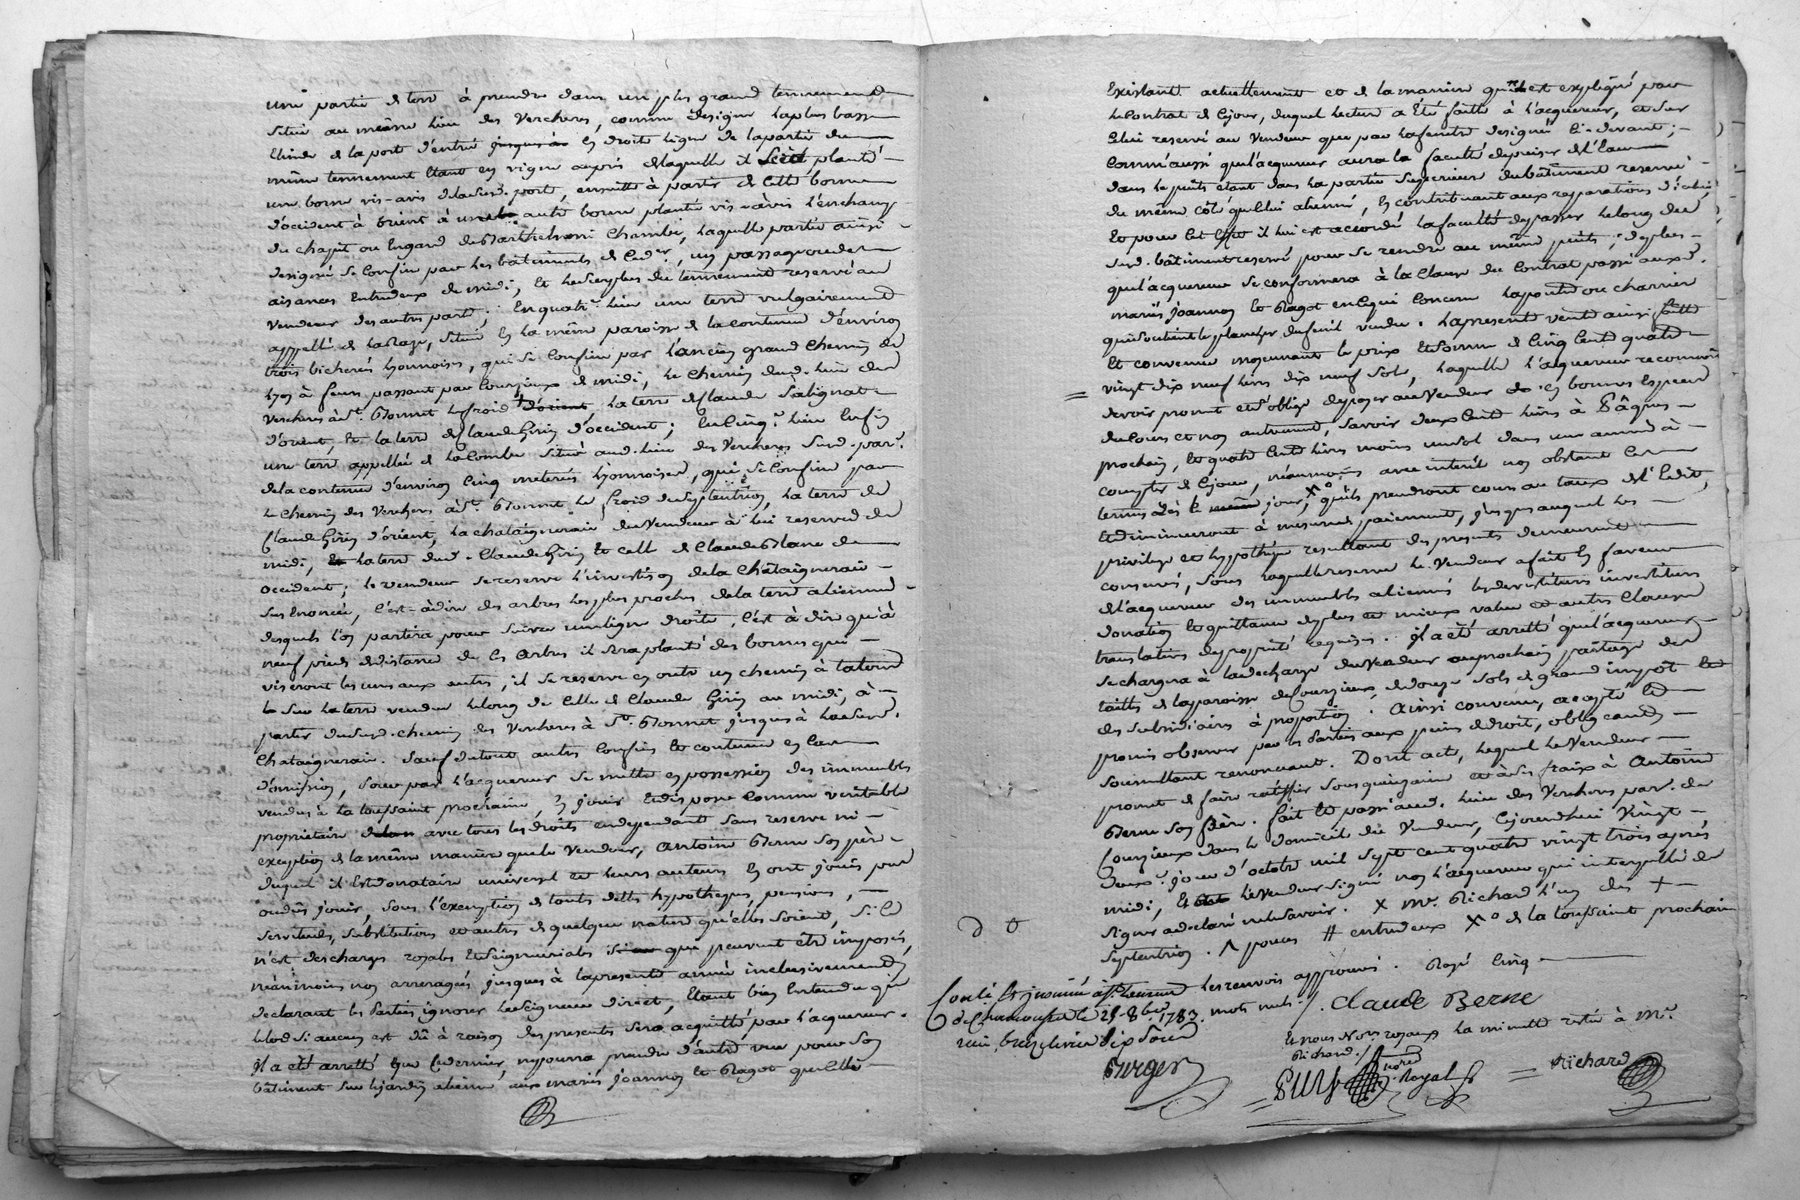 une partie de terre à prendre dans un plus grand tennement
situé au même lieu des Verchères, comme désigne la plus basse
de la porte d'entrée jusques à en droite ligne de la partie du
même tennement étant en vigne auprès de laquelle il sera planté
une borne vis-avis de lad. porte, ensuitte à partir de cette borne
d'occident à orient à une autre borne plantée vis-àvis l'enchamp
du chapit ou engard de Barthelemi Chambe, laquelle partie ainsi
designée se confine par les bâtiments de , un passage ou des
aisances entredeux de midi, et le surplus du tennement reservé au
vendeur des autres parts; en quatr.e lieu une terre vulgairement
appellée de la Raze, située en la même paroisse de la contenue d'environ
trois bicherées lyonnoises, qui se confine par l'ancien grand chemin de
Lyon à feurs passant par Courzieux de midi, le chemin dud. lieu des
Verchères à St. Bonnet le froid d'orient, la terre de Claude Salignat
d'orient, et la terre de Claude Girin d'occident; en cinq.e lieu enfin
une terre appellée de la Combe située aud. lieu des Verchères susd. par.
de la contenue d'environ cinq meterées lyonnoises, qui se confine par
le chemin des Verchères à St. Bonnet le froid de septentrion, la terre de
Claude Girin d'orient, la chataigneraie du Vendeur à lui reservée de
midi, et la terre dud. Claude Girin et celle de Claude Blanc de
occident; le vendeur se reserve l'investison de la Châtaigneraie
sus énoncée, c'est-àdire des arbres les plus proches de la terre alienée
desquels l'on partira pour suivre une ligne droite, c'est à dire qu'à
neuf pieds de distance de ces arbres il sera planté des bornes qui
viseront les unes aux autres, il se reserve en outre un chemin à talons
sur la terre vendue le long de celle de Claude Girin au midi, à
partir dud. chemin des Verchères à St. Bonnet jusques à lad.
Chataigneraie. Sauf de tous autres confins et contenue en cas
d'omission, pour par l'acquereur se mettre en possession des immeubles
vendus à la toussaint prochaine, en jouir et disposer comme veritable
proprietaire avec tous les droits en dependants sans reserve ni
exception de la même manière que le Vendeur, Antoine Berne son père
duquel il est donataire universel et leurs auteurs en ont jouis pour
ou dûs jouir, sous l'exemption de toutes dettes hypotheques, pensions,
servitudes, substitutions et autres de quelque nature qu'elles soient, si ce
n'est des charges royales et seigneuriales que peuvent etre imposés,
néanmoins non arreragés jusques à la presente année inclusivement
declarant les parties ignorer le seigneur direct, étant bien entendu que
le lod si aucun est dû à raison des presentes sera acquitté par l'acquereur.
Il a été arretté que ce dernier, ne pourra prendre d'autre vue pour son
bâtiment sur le jardin aliené aux mariés Joannon et Ragot que celle
existant actuellement et de la manière qu'il est expliqué par
le contrat de ce jour, duquel lecture a été faite à l'acquereur, et sur
celui reservé au Vendeur que par la fenetre designée ci-devant;
comm'aussi que l'acquereur aura la faculté de puiser de l'eau
dans le puits étant dans la partie superieure du bâtiment reservé
du même côté que celui aliené, en contribuant aux reparations d'icelui
et pour cet effet il lui est accordé la faculté de passer le long dud.
susd. bâtiment reservé pour se rendre au même puits; de plus
que l'acquereur se conformera à la clause du contrat passé auxd.
mariés Joannon et Ragot en ce qui concerne la poutre ou charrier
qui soutient le plancher du fenil vendu. La presente vente ainsi faitte
et convenue moyennant le prix et somme de cinq cent quatre
vingt dix neuf livres dix neuf sols, laquelle l'acquereur reconnoit
devoir promet et s'oblige de payer au Vendeur en bonnes especes
de cours et non autrement, savoir deux cent livres à Pâques
prochain, et quatre cents livres moins un sol dans une année à
compter de ce jour, néanmoins avec interêt non obstant les
termes dès le même jour, X° qu'ils prendront cours au taux de l'Edit,
et diminueront à mesure de paiement, jusques auquel les
privilege et hypothèque resultant des presentes demeureront
conservés, sous laquelle reserve le Vendeur a fait en faveur
de l'acquereur des immeubles alienés les devestiture investiture
donation et quittance de plus et mieux value et autres clauses
translatives de propriété requises. Il a été arretté que l'acquereur
se chargera à la decharge du Vendeur au prochain partage des
tailles de la paroisse de Courzieux, de douze sols de grand impôt et
des subsidiaires à proportion. Ainsi convenu, accepté et
promis observer par les parties aux peines de droit, obligeants
soumettant renonceant. Dont acte, lequel le Vendeur
promet de faire ratiffier sous quinzaine et à ses fraix à Antoine
Berne son père. fait et passé aud. lieu des Verchères par. de
Courzieux dans le domicile du Vendeur, cejourdhui Vingt
deux.e jour d'octobre mil sept cent quatre vingt trois après
midi, et le Vendeur signé non l'acquereur qui interpellé de
signer a declaré ne le savoir. X Mr. Richard l'un des +
septentrion. ^ pouces # entredeux X° de la toussaint prochaine
les renvois approuvés. Rayé cinq
mots nuls. /. Claude Berne
Conlé Et insinué à St. Laurent
de Chamousset le 25 8bre 1783.
reçu livres dix sous
Burger
Et nous Nores royaux la minutte restée à Mr.
Richard. /
nore Royal
Richard